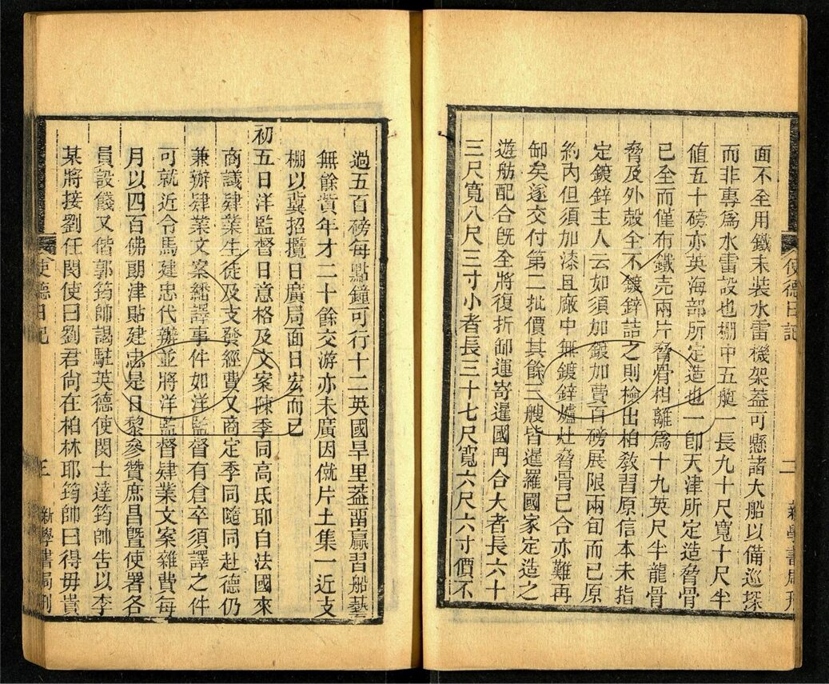 面不全用鐵未裝水雷機架蓋可懸諸大船以備巡探
而非專爲水雷設也棚中五艇一長九十尺寬十尺半
値五十磅亦英海部所定造也一卽天津所定造脅骨
已全而僅布鐵壳兩片脅骨相離爲十九英尺半龍骨
脅及外殼全不鍍鋅詰之則檢出柏敎習原信本未指
定鍍鋅主人云如須加鍍加費百磅展限兩旬而已原
約內但須加漆且廠中無鍍鋅爐灶脅骨已合亦難再
卸矣遂交付第二批價其餘三艘皆暹羅國家定造之
遊舫配合旣全將復折卸運寄暹國鬥合大者長六十
三尺寬八尺三寸小者長三十七尺寬六尺六寸價不
使德日記
二
新學書局刋
過五百磅每點鐘可行十二英國旱里葢畱贏習船藝
無餘貲年才二十餘交游亦未廣因僦片土集一近支
棚以冀招攬日廣局面日宏而已
初五日洋監督日意格及文案陳季同高氏耶自法國來
商議肄業生徒及支發經費又商定季同隨同赴德仍
兼辦肄業文案繙譯事件如洋監督有倉卒須譯之件
可就近令馬建忠代辦並將洋監督肄業文案雜費每
月以四百佛郞津貼建忠是日黎參贊庶昌曁使署各
員設餞又偕郭筠帥謁駐英德使閔士達筠帥告以李
某將接劉任閔使曰劉君尙在柏林耶筠帥曰得毋貴
使德日記
三
新學書局刋